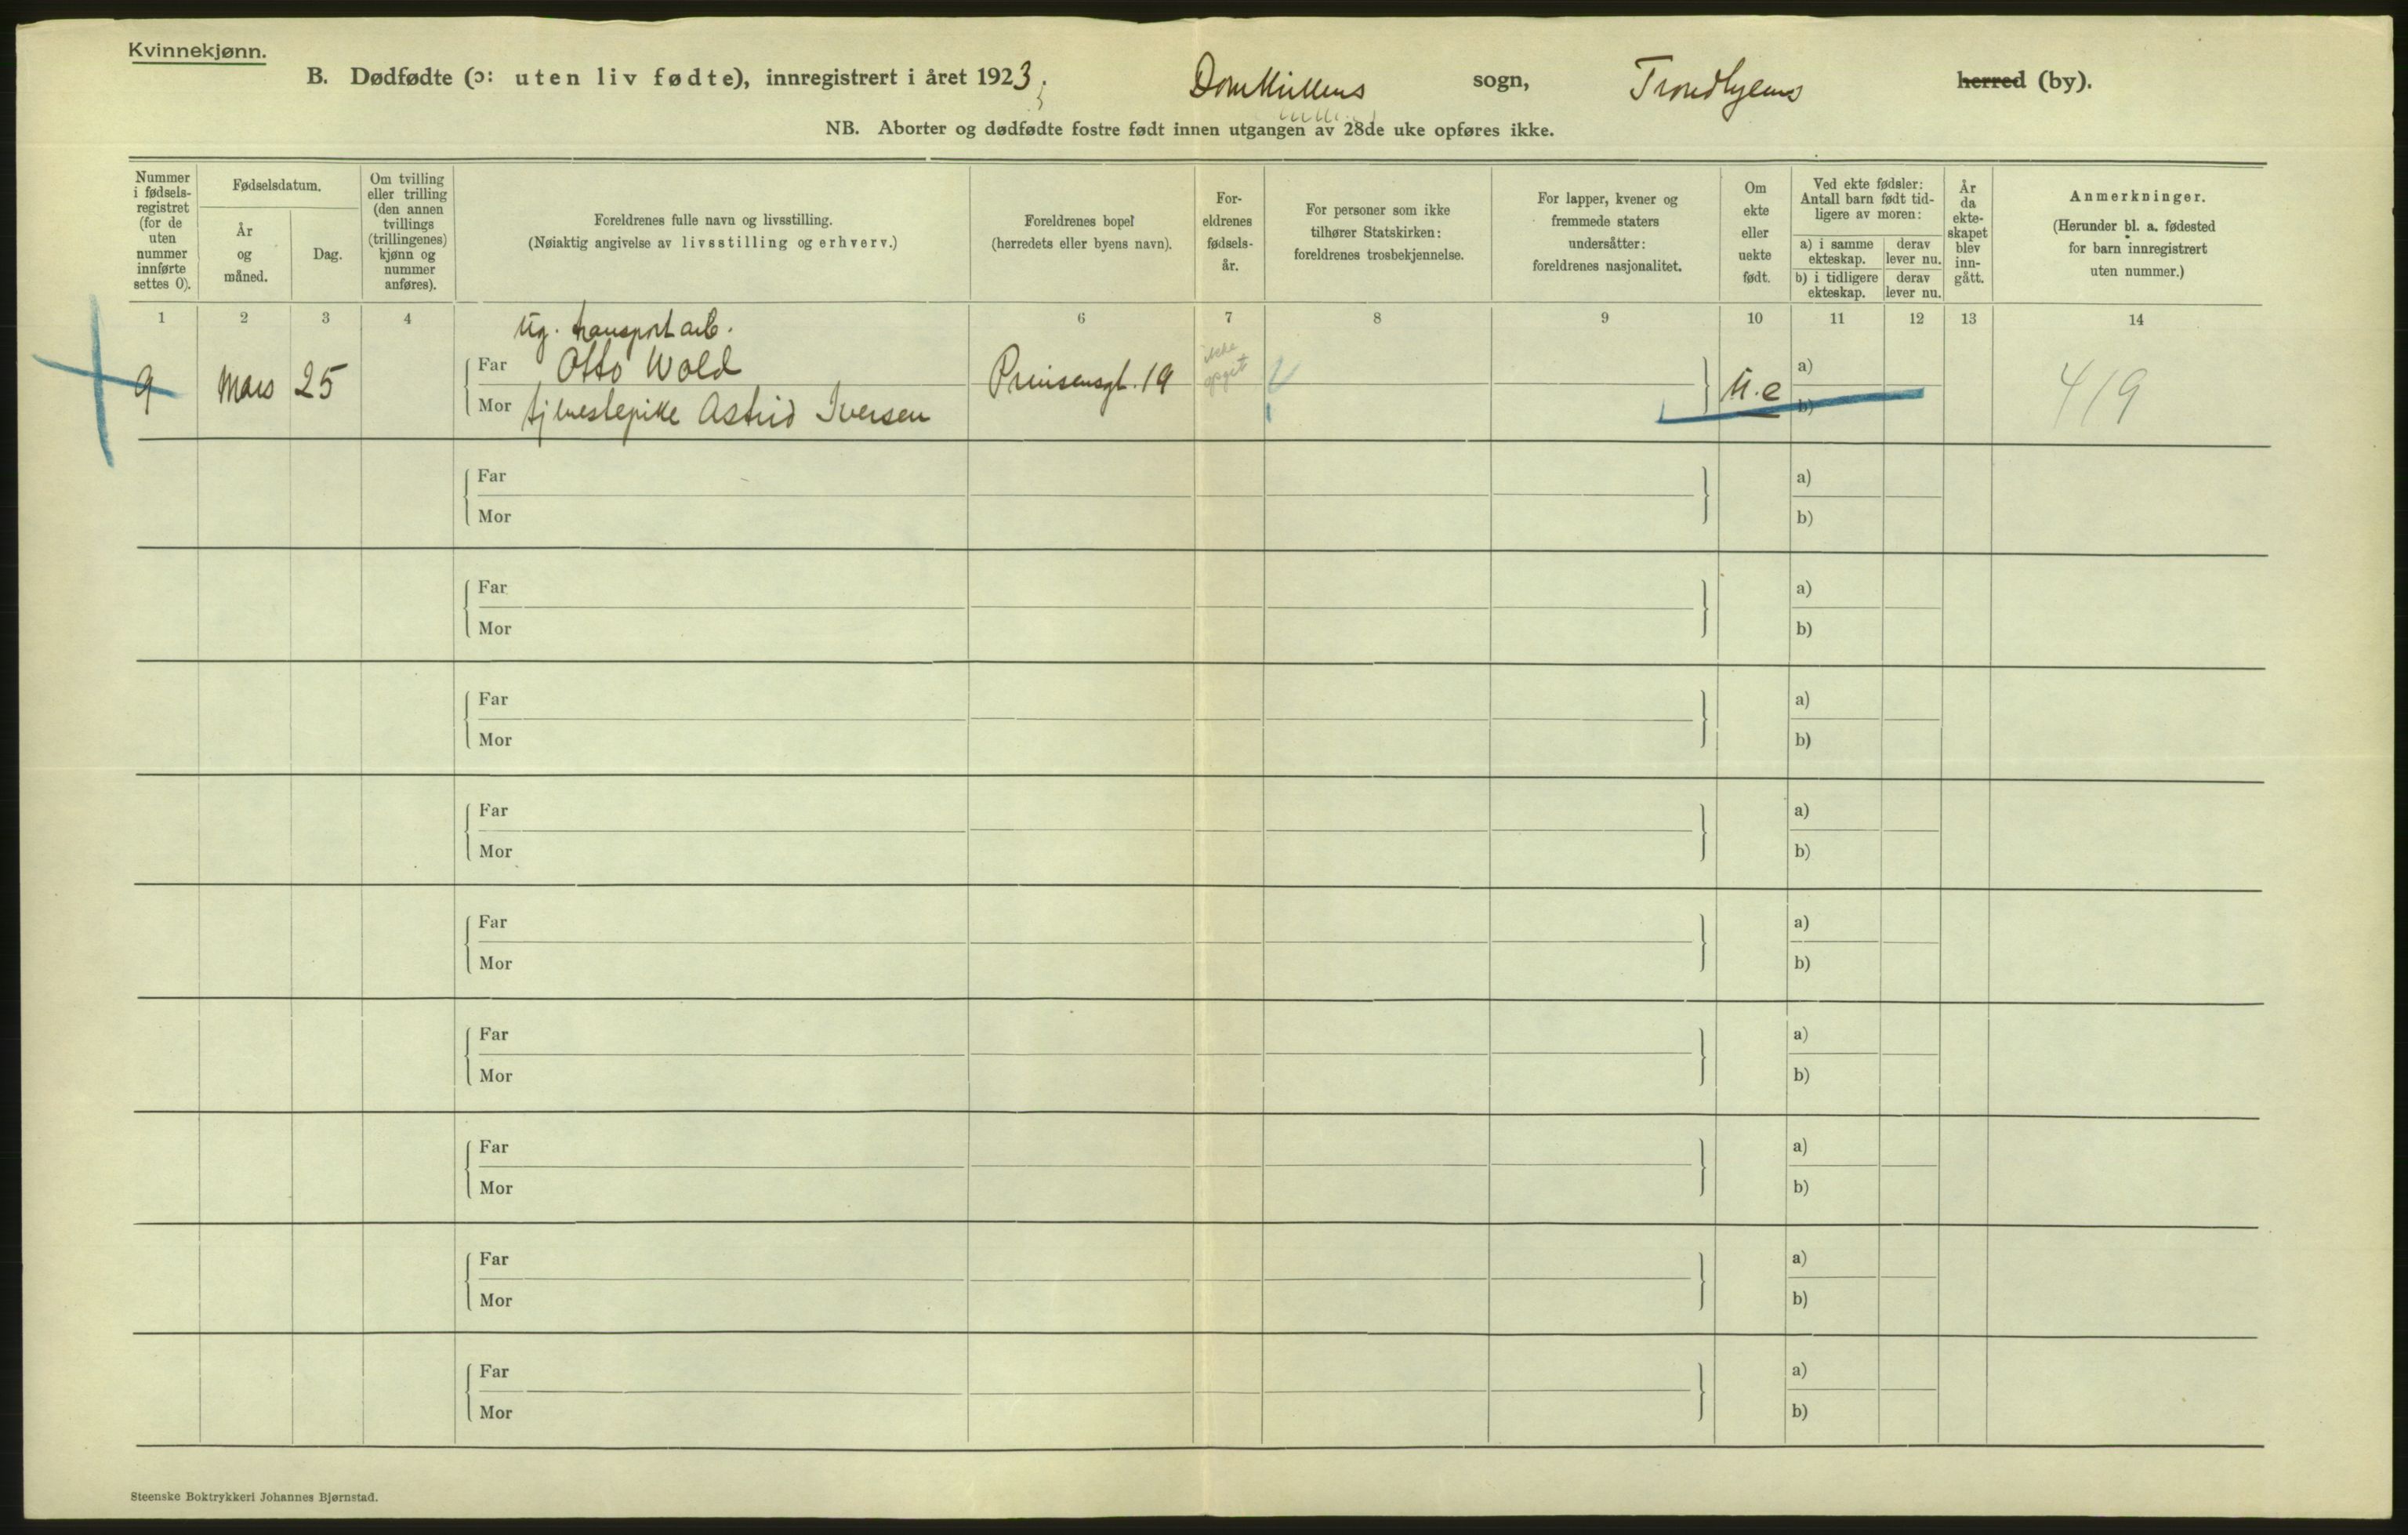 Kvinnekjønn.
B. Dødfødte (ɔ: uten liv fødte), innregistrert i året 1923. Domkirkens sogn, Trondhjems herred (by).
NB. Aborter og dødfødte fostre født innen utgangen av 28de uke opføres ikke.
Nummer i fødsels-registret (for de uten nummer innførte settes 0).
Fødselsdatum.
År og måned.
Dag.
Om tvilling eller trilling (den annen tvillings (trillingenes) kjønn og nummer anføres).
Foreldrenes fulle navn og livsstilling.
(Nøiaktig angivelse av livsstilling og erhverv.)
Foreldrenes bopel
(herredets eller byens navn).
For-eldrenes fødsels-år.
For personer som ikke tilhører Statskirken: foreldrenes trosbekjennelse.
For lapper, kvener og fremmede staters undersåtter: foreldrenes nasjonalitet.
Om ekte eller uekte født.
Ved ekte fødsler: Antall barn født tid-ligere av moren:
a) i samme ekteskap.
derav lever nu.
b) i tidligere ekteskap.
derav lever nu.
År da ekte-skapet blev inn-gått.
Anmerkninger.
(Herunder bl. a. fødested for barn innregistrert uten nummer.)
1 2 3 4 6 7 8 9 10 11 12 13 14
Ug. transportarb.
9 Mars 25 Far Otto Wold Prinsensgt. 19 ikke opgit U.e a) 419
Mor tjenestepike Astrid Iversen b)
Far a)
Mor b)
Far a)
Mor b)
Far a)
Mor b)
Far a)
Mor b)
Far a)
Mor b)
Far a)
Mor b)
Far a)
Mor b)
Far a)
Mor b)
Far a)
Mor b)
Steenske Boktrykkeri Johannes Bjørnstad.